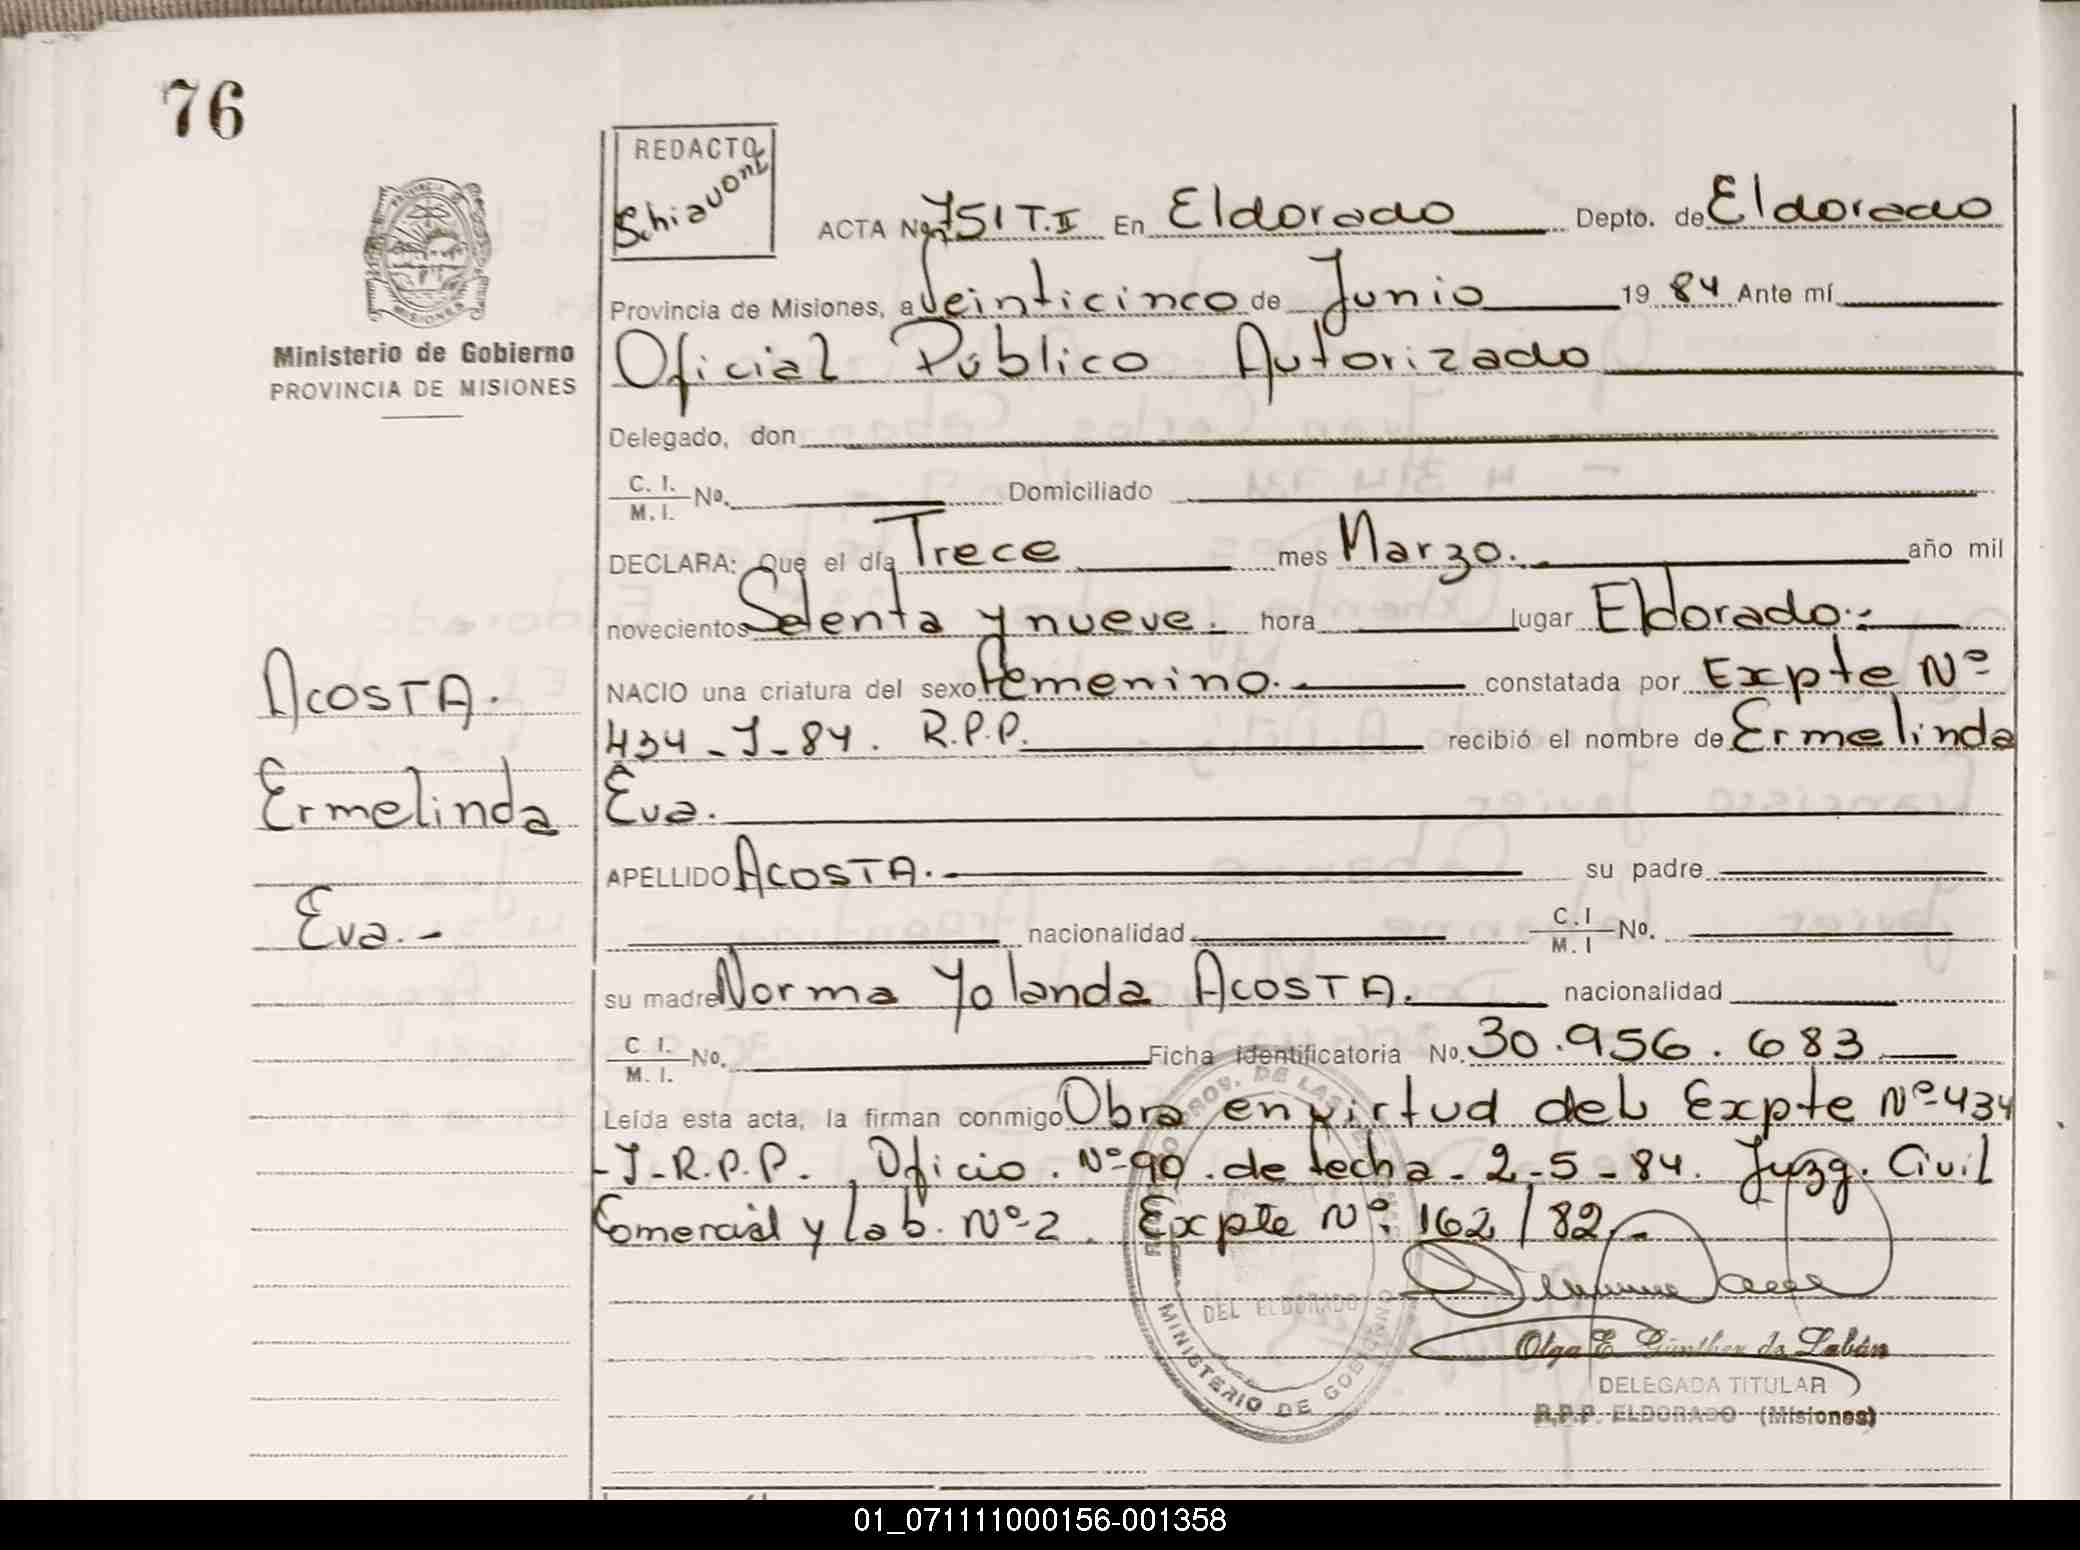 76
REDACTO
Schiavoni
ACTA No. 751 T.II En Eldorado Depto. de Eldorado
Provincia de Misiones, a Veinticinco de Junio 19 84 Ante mí
Oficial Público Autorizado
Ministerio de Gobierno
PROVINCIA DE MISIONES
Delegado, don
C. I.
M. I. No. Domiciliado
DECLARA: Que el día Trece mes Marzo. año mil
novecientos Setenta y nueve. hora lugar Eldorado.-
NACIO una criatura del sexo Femenino. constatada por Expte Nº
434-J-84. R.P.P. recibió el nombre de Ermelinda
Eva.
ACOSTA.
Ermelinda
Eva.-
APELLIDO ACOSTA. su padre
nacionalidad C.I
M.I No.
su madre Norma Yolanda ACOSTA. nacionalidad
C I.
M. I. No. Ficha identificatoria No. 30.956.683
Leída esta acta, la firman conmigo Obra en virtud del Expte Nº 434
-J-R.P.P. Oficio. Nº 90. de fecha - 2-5-84. Juzg. Civil
Comercial y Lab. Nº 2. Expte Nº. 162/82.-
PROV. DE LAS
DEL ELDORADO
MINISTERIO DE GOBIERNO
Olga E. Günther de Labán
DELEGADA TITULAR
R.P.P. ELDORADO (Misiones)
01_071111000156-001358